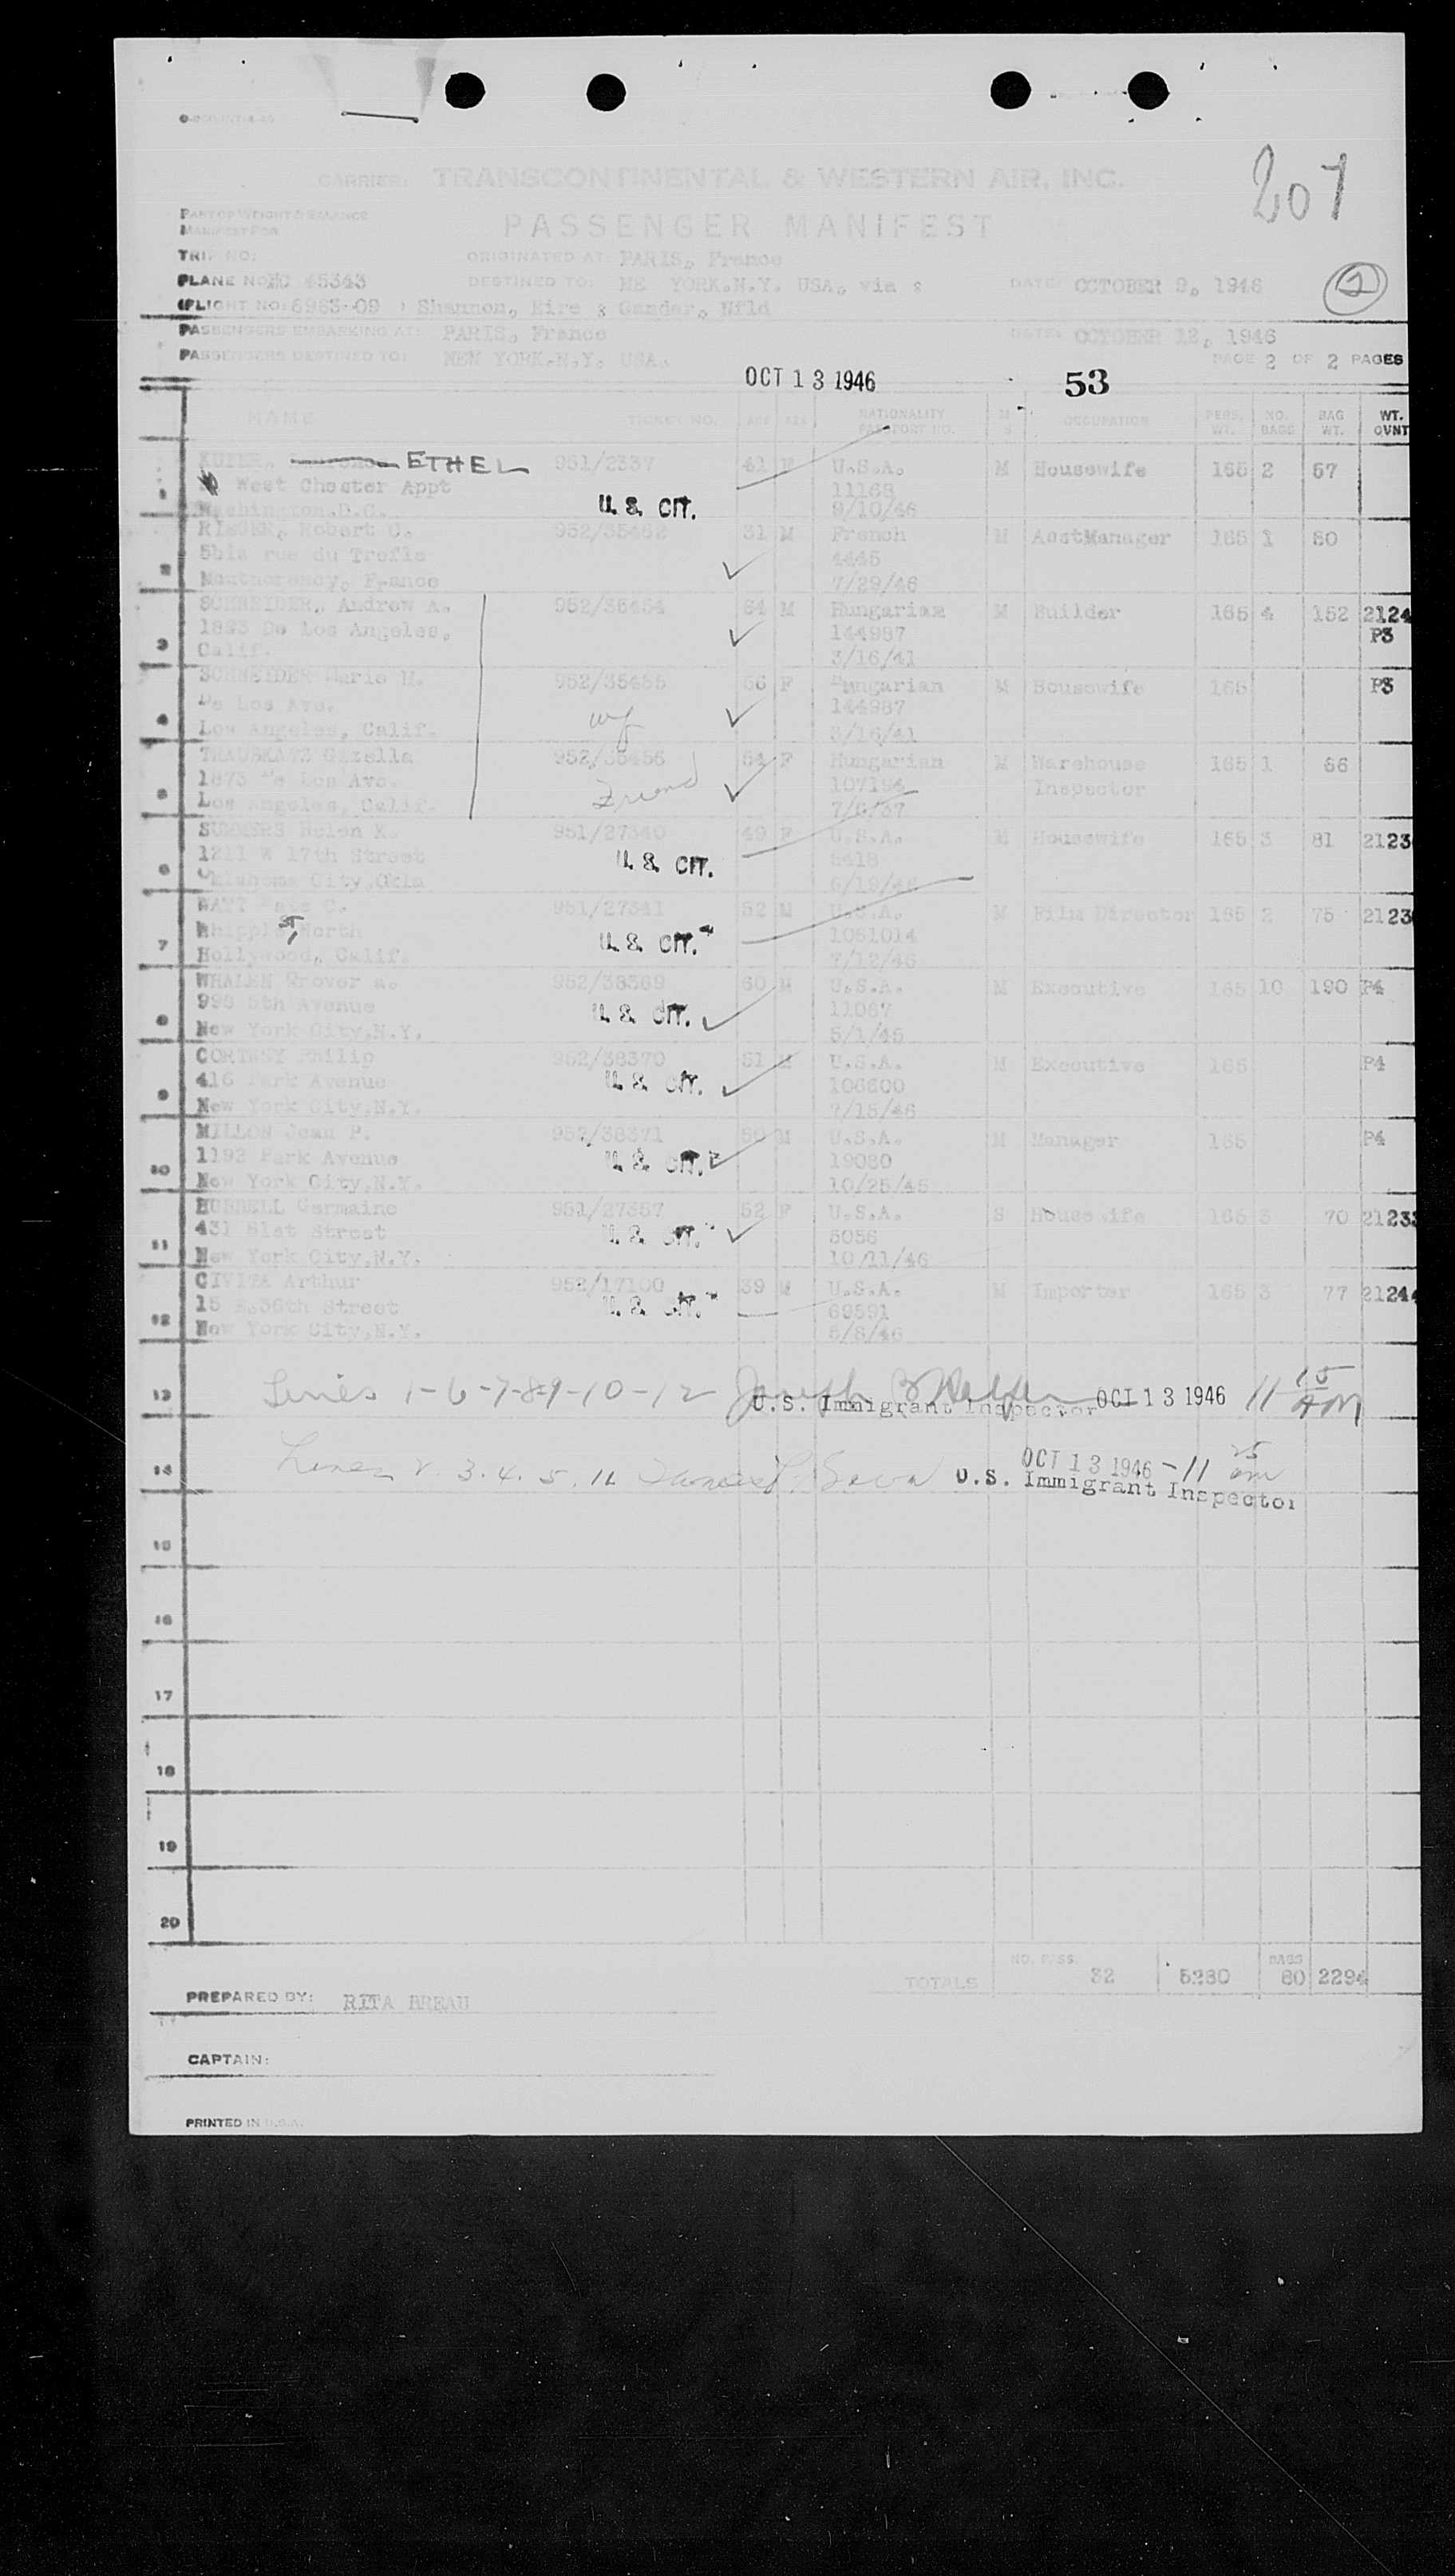 207
CARRIER: TRANSCONTINENTAL & WESTERN AIR, INC.
PART OF WEIGHT & BALANCE
MANIFEST FOR
PASSENGER MANIFEST
TRIP NO: ORIGINATED AT: PARIS, France
PLANE NO: NC 45343 DESTINED TO: NE YORK.N.Y. USA. via : DATE: OCTOBER 9, 1946 2
(FLIGHT NO: 6963-09 ) Shannon, Eire & Gander, Nfld
PASSENGERS EMBARKING AT: PARIS, France DATE: OCTOBER 12, 1946
PASSENGERS DESTINED TO: NEW YORK.N.Y. USA. PAGE 2 OF 2 PAGES
OCT 13 1946 53
NAME TICKET NO. AGE SEX NATIONALITY PASSPORT NO. M S OCCUPATION PERS. WT. NO. BAGS BAG WT. WT. OVNT
KUPER, ETHEL 951/2337 41 F U.S.A. M Housewife 165 2 57
1 West Chester Appt 11168
Washington.D.C. U.S. CIT. 9/10/46
RIEGER, Robert C. 952/35462 31 M French M AsstManager 165 1 50
2 5bis rue du Trefle 4445
Montmorency, France 7/29/46
SCHNEIDER, Andrew A. 952/35454 54 M Hungarian M Builder 165 4 152 2124
3 De Los Angeles, 144987 P3
Calif. 3/16/41
SCHNEIDER Marie M. 952/35455 56 F Hungarian M Housewife 165 P3
4 De Los Ave. wf 144987
Los Angeles, Calif. 3/16/41
Gizella 952/35456 54 F Hungarian M Warehouse 165 1 66
5 1873 De Los Ave. Friend 107194 Inspector
Los Angeles, Calif. 7/6/37
SUMMERS Helen K. 951/27340 49 F U.S.A. M Housewife 165 3 81 2123
6 1211 W 17th Street U.S. CIT. 5418
Oklahoma City,Okla 6/19/46
WATT C. 951/27341 52 M U.S.A. M Film Director 165 2 75 2123
7 Whipple ST, North U.S. CIT. 1061014
Hollywood, Calif. 7/12/46
WHALEN Grover A. 952/38369 60 M U.S.A. M Executive 165 10 190 P4
8 998 5th Avenue U.S. CIT. 11067
New York City,N.Y. 5/1/46
CORTNEY Philip 952/38370 51 M U.S.A. M Executive 165 P4
9 416 Park Avenue U.S. CIT. 106600
New York City,N.Y. 7/15/46
MILLON Jean P. 952/38371 50 M U.S.A. M Manager 165 P4
10 1192 Park Avenue U.S. CIT. 19080
New York City,N.Y. 10/25/45
HUBBELL Germaine 951/27357 52 F U.S.A. S Housewife 165 3 70 21233
11 431 81st Street U.S. CIT. 5056
New York City,N.Y. 10/11/46
CIVITA Arthur 952/17100 39 M U.S.A. M Importer 165 3 77 21244
12 15 E.36th Street U.S. CIT. 69591
New York City,N.Y. 5/8/46
13 Lines 1-6-7-8-9-10-12 Joseph B OCT 13 1946 11 15 AM
U.S. Immigrant Inspector
14 Lines 2.3.4.5.11 OCT 13 1946 - 11 25 am
U.S. Immigrant Inspector
15
16
17
18
19
20
TOTALS NO. PASS. 32 5280 BAGS 80 2294
PREPARED BY: RITA BREAU
CAPTAIN:
PRINTED IN U.S.A.